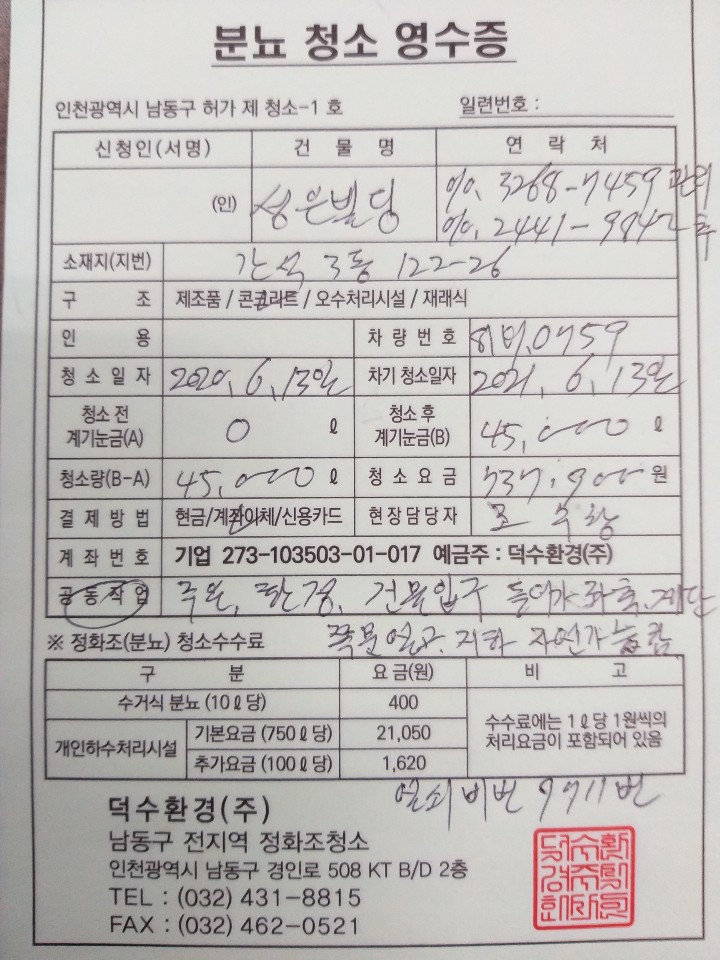 분뇨 청소 영수증
인천광역시 남동구 허가 제 청소-1 호 일련번호 :
신청인(서명) 건물명 연락처
(인) 성은빌딩 010. 3268-7459 관리
010. 2441-
소재지(지번) 간석 3동 122-26
구조 제조품 / 콘크리트 / 오수처리시설 / 재래식
인용 차량번호 0759
청소일자 2020. 6. 13일 차기 청소일자 2021. 6. 13일
청소 전 계기눈금(A) 0 ℓ 청소 후 계기눈금(B) 45,000 ℓ
청소량(B-A) 45,000 ℓ 청소요금 737,900 원
결제방법 현금/계좌이체/신용카드 현장담당자
계좌번호 기업 273-103503-01-017 예금주 : 덕수환경(주)
공동작업 건물입구 들어가 좌측
※ 정화조(분뇨) 청소수수료 쪽문 열고 지하
구분 요금(원) 비고
수거식 분뇨 (10ℓ당) 400 수수료에는 1ℓ당 1원씩의
처리요금이 포함되어 있음
개인하수처리시설 기본요금 (750ℓ당) 21,050
추가요금 (100ℓ당) 1,620
열쇠 비번 9711번
덕수환경(주)
남동구 전지역 정화조청소
인천광역시 남동구 경인로 508 KT B/D 2층
TEL : (032) 431-8815
FAX : (032) 462-0521